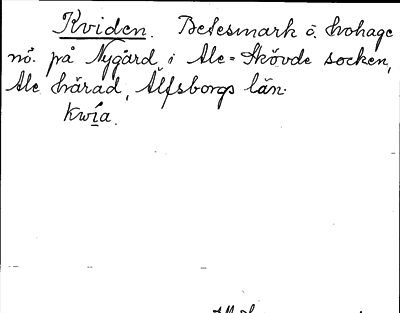 Kviden. Betesmark o. hohage
nö. på Nygård i Ale-Skövde socken,
Ale härad, Älfsborgs län.
Kwía.